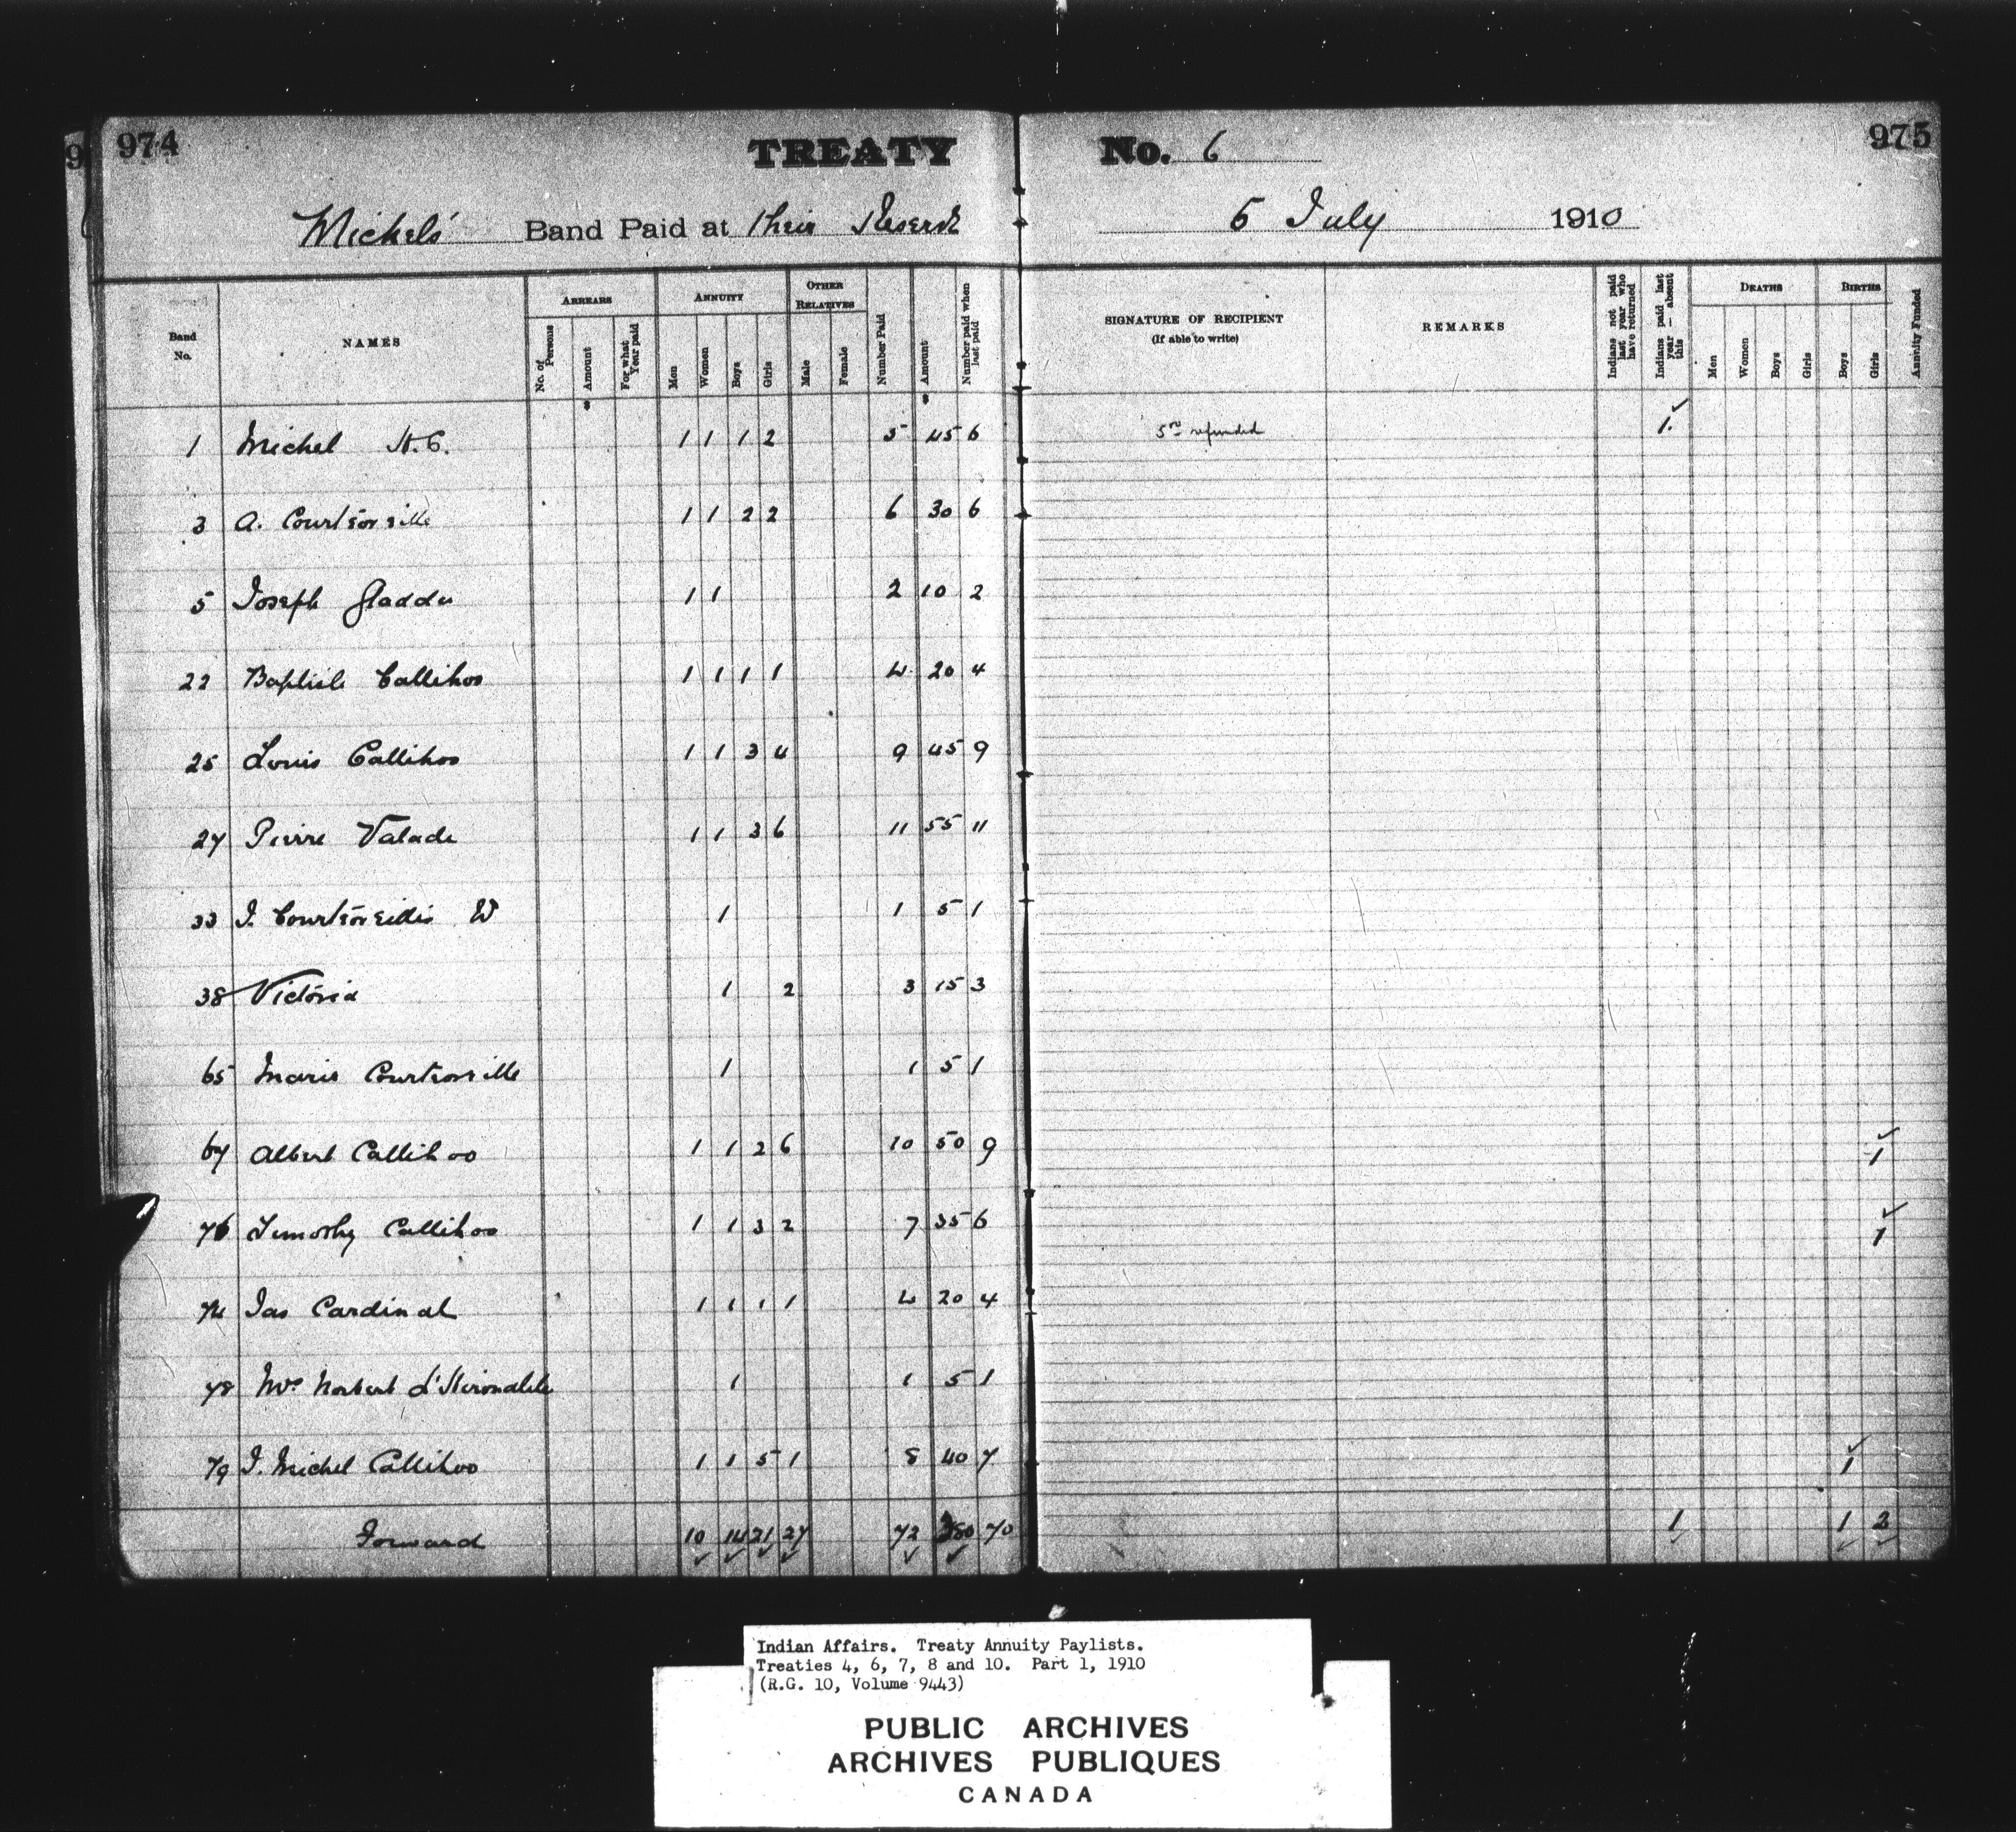 974 TREATY No. 6 975
Michel's Band Paid at their Reserve 5 July 1910
Band No. NAMES ARREARS No. of Persons Amount For what Year paid ANNUITY Men Women Boys Girls OTHER RELATIVES Male Female Number Paid Amount Number paid when last paid SIGNATURE OF RECIPIENT (If able to write) REMARKS Indians not paid last year who have returned Indians paid last year — absent this DEATHS Men Women Boys Girls BIRTHS Boys Girls Annuity Funded
1 Michel H.C. 1 1 1 2 5 45 6 5 refunded 1
3 A. Courtoreille 1 1 2 2 6 30 6
5 Joseph Gladdu 1 1 2 10 2
22 Baptiste Callihoo 1 1 1 1 4 20 4
25 Louis Callihoo 1 1 3 4 9 45 9
27 Pierre Valade 1 1 3 6 11 55 11
33 J. Courtoreilles W 1 1 5 1
38 Victoria 1 2 3 15 3
65 Marie Courtoreille 1 1 5 1
67 Albert Callihoo 1 1 2 6 10 50 9 1
76 Timothy Callihoo 1 1 3 2 7 35 6 1
74 Jas Cardinal 1 1 1 1 4 20 4
78 Mrs Norbert L'Hirondelle 1 1 5 1
79 J. Michel Callihoo 1 1 5 1 8 40 7 1
Forward 10 14 21 27 72 380 70 1 1 2
Indian Affairs. Treaty Annuity Paylists.
Treaties 4, 6, 7, 8 and 10. Part 1, 1910
(R.G. 10, Volume 9443)
PUBLIC ARCHIVES
ARCHIVES PUBLIQUES
CANADA